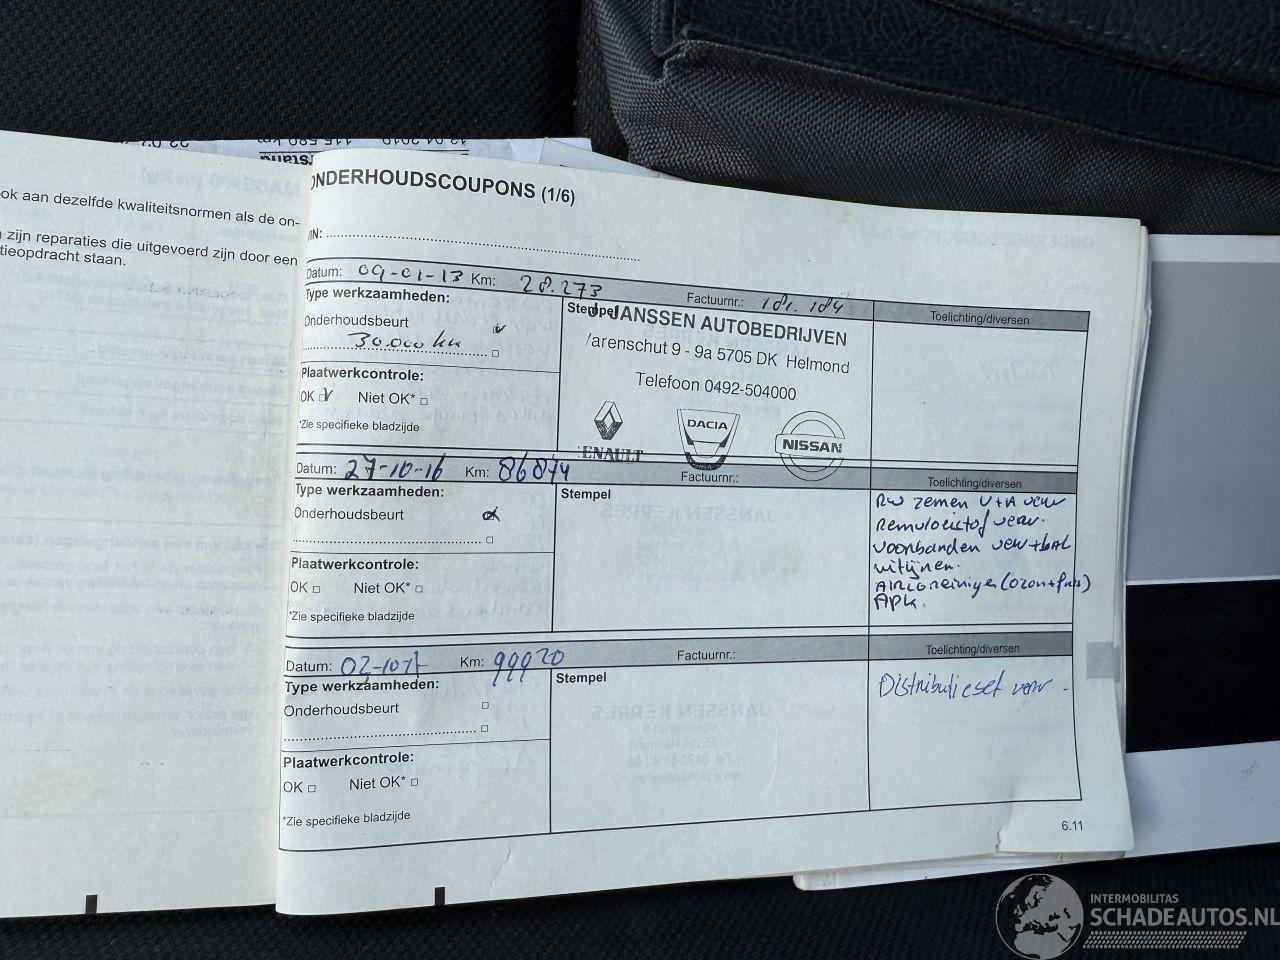 ok aan dezelfde kwaliteitsnormen als de on-
zijn reparaties die uitgevoerd zijn door een
tieopdracht staan.
12.04.2019 115.589 km
ONDERHOUDSCOUPONS (1/6)
VIN:
Datum: 09-01-13 Km: 28.273 Factuurnr.: 181.184
Toelichting/diversen
Type werkzaamheden:
Onderhoudsbeurt
30.000 km
Plaatwerkcontrole:
OK Niet OK*
*Zie specifieke bladzijde
Stempel
JANSSEN AUTOBEDRIJVEN
Varenschut 9 - 9a 5705 DK Helmond
Telefoon 0492-504000
RENAULT
DACIA
NISSAN
Datum: 27-10-16 Km: 86874 Factuurnr.:
Toelichting/diversen
Type werkzaamheden:
Onderhoudsbeurt
Plaatwerkcontrole:
OK Niet OK*
*Zie specifieke bladzijde
Stempel
RW zemen V+A verv
Remvloeistof verv.
voorbanden verv+bal
uitlijnen.
Aircoreiniger (ozon+fris)
APK.
Datum: Km: 99920 Factuurnr.:
Toelichting/diversen
Type werkzaamheden:
Onderhoudsbeurt
Plaatwerkcontrole:
OK Niet OK*
*Zie specifieke bladzijde
Stempel
Distributieset verv.
6.11
INTERMOBILITAS
SCHADEAUTOS.NL